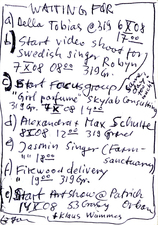 WAITING FOR
a) Della Tobias @ 319 6X08
1700
b) Start video shoot for
Swedish singer Robyn
7X08 0800 319 Gr.
c) Start Focusgroup
"Girl perfume" Skylab Consulting
319 Gr. 7X08 1400
d) Alexandra + Max Schulte
8X08 1200 319 Grand
e) Jasmin Singer (Farm-
" 1800 sanctuary)
f) Firewood delivery
1900 319 Gr.
g) Start Artshow @ Patrick
53 Orban
+ Klaus Wammes